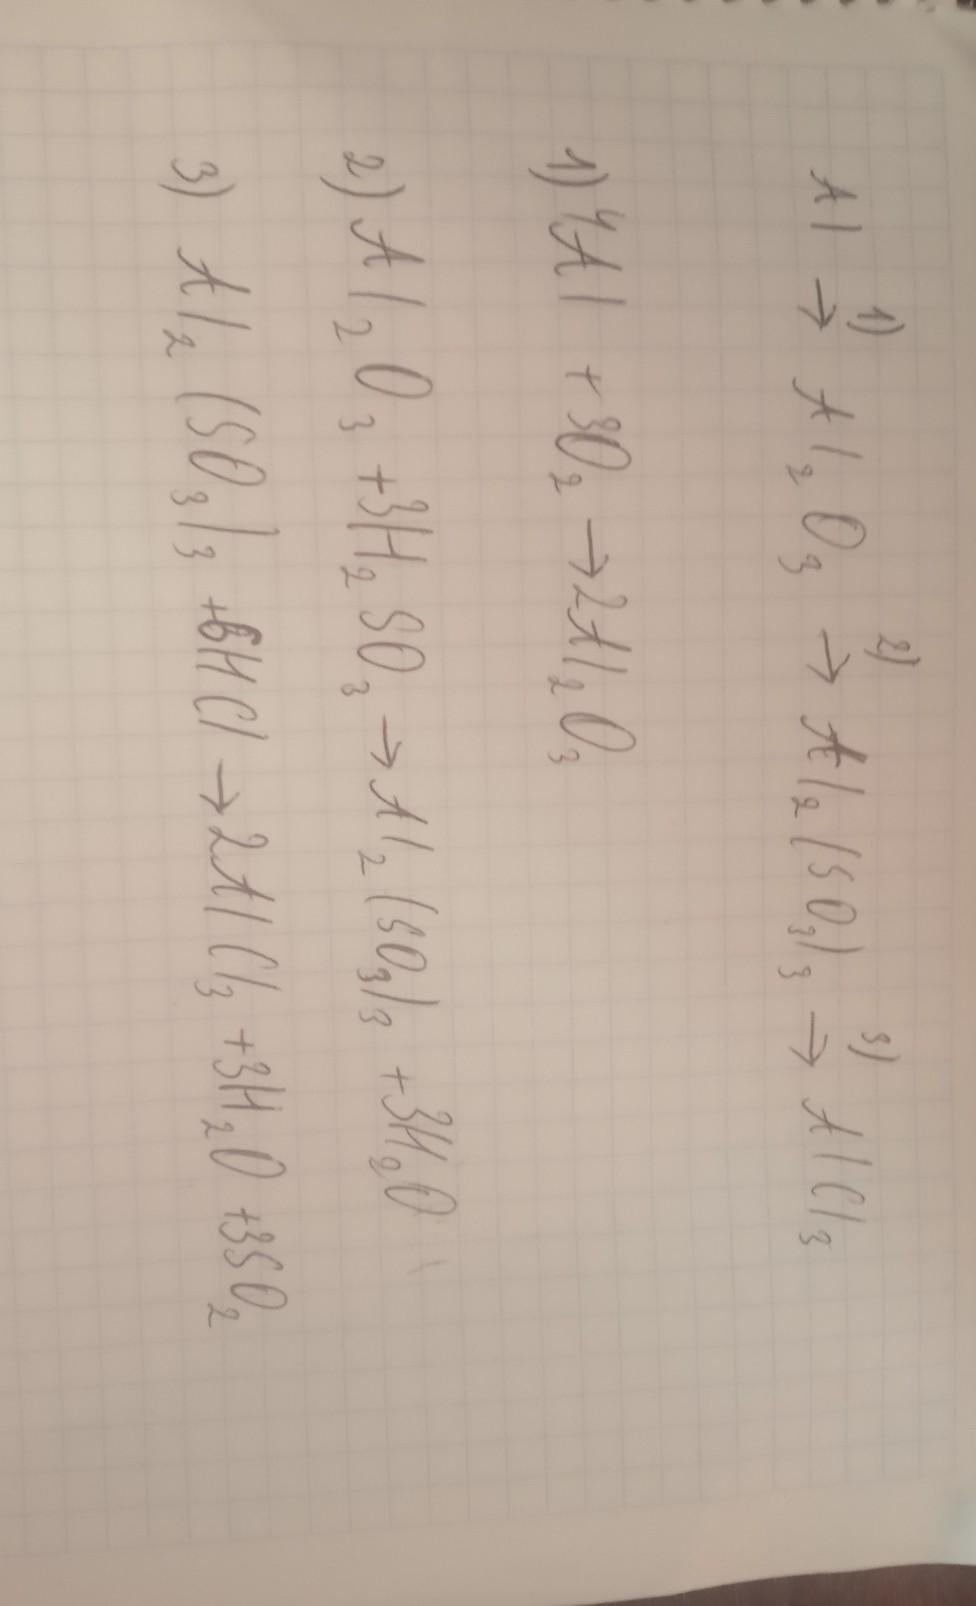 1) 2) 3)
Al → Al₂O₃ → Al₂(SO₃)₃ → AlCl₃
1) 4Al + 3O₂ → 2Al₂O₃
2) Al₂O₃ + 3H₂SO₃ → Al₂(SO₃)₃ + 3H₂O
3) Al₂(SO₃)₃ + 6HCl → 2AlCl₃ + 3H₂O + 3SO₂